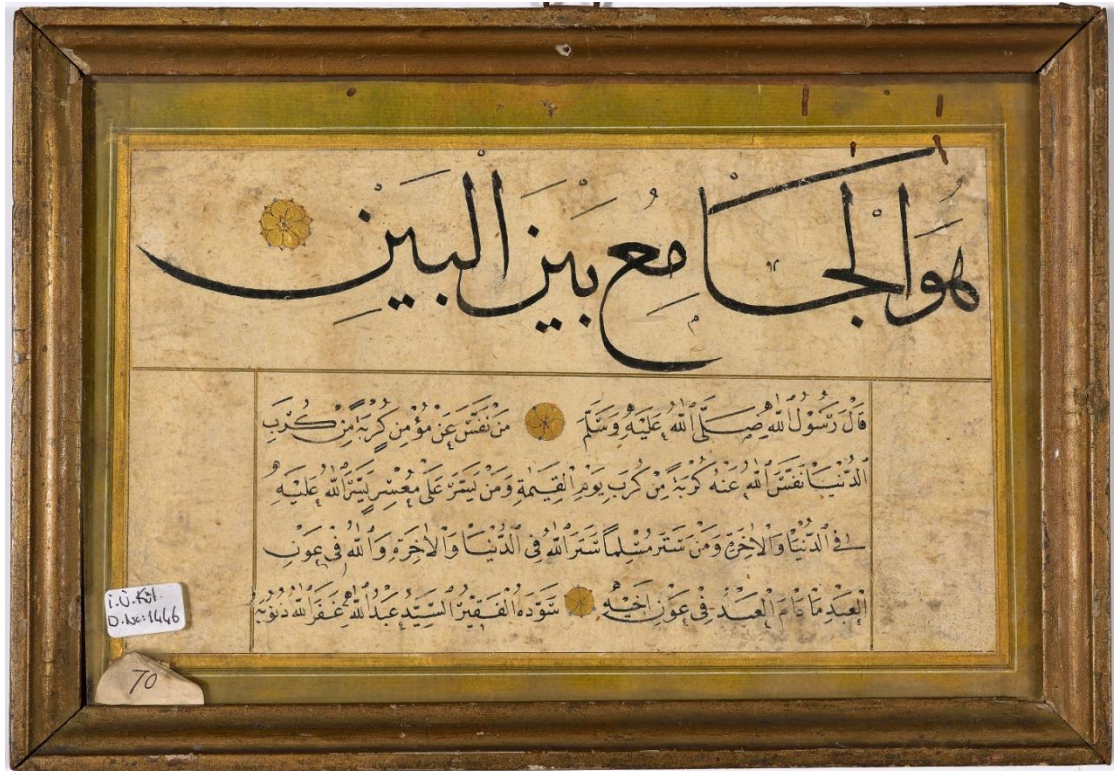 هُوَ الْجَامِعُ بَيْنَ الْبَيْنِ
قَالَ رَسُولُ اللّٰهِ صَلَّى اللّٰهُ عَلَيْهِ وَسَلَّمَ مَنْ نَفَّسَ عَنْ مُؤْمِنٍ كُرْبَةً مِنْ كُرَبِ
الدُّنْيَا نَفَّسَ اللّٰهُ عَنْهُ كُرْبَةً مِنْ كُرَبِ يَوْمِ الْقِيٰمَةِ وَمَنْ يَسَّرَ عَلَى مُعْسِرٍ يَسَّرَ اللّٰهُ عَلَيْهِ
فِي الدُّنْيَا وَالْاٰخِرَةِ وَمَنْ سَتَرَ مُسْلِمًا سَتَرَ اللّٰهُ فِي الدُّنْيَا وَالْاٰخِرَةِ وَاللّٰهُ فِي عَوْنِ
الْعَبْدِ مَا دَامَ الْعَبْدُ فِي عَوْنِ اَخِيهِ سَوَّدَهُ الْفَقِيرُ السَّيِّدُ عَبْدُ اللّٰهِ غَفَرَ اللّٰهُ ذُنُوبَهُ
İ.Ü.Küt.
D.No:1446
70